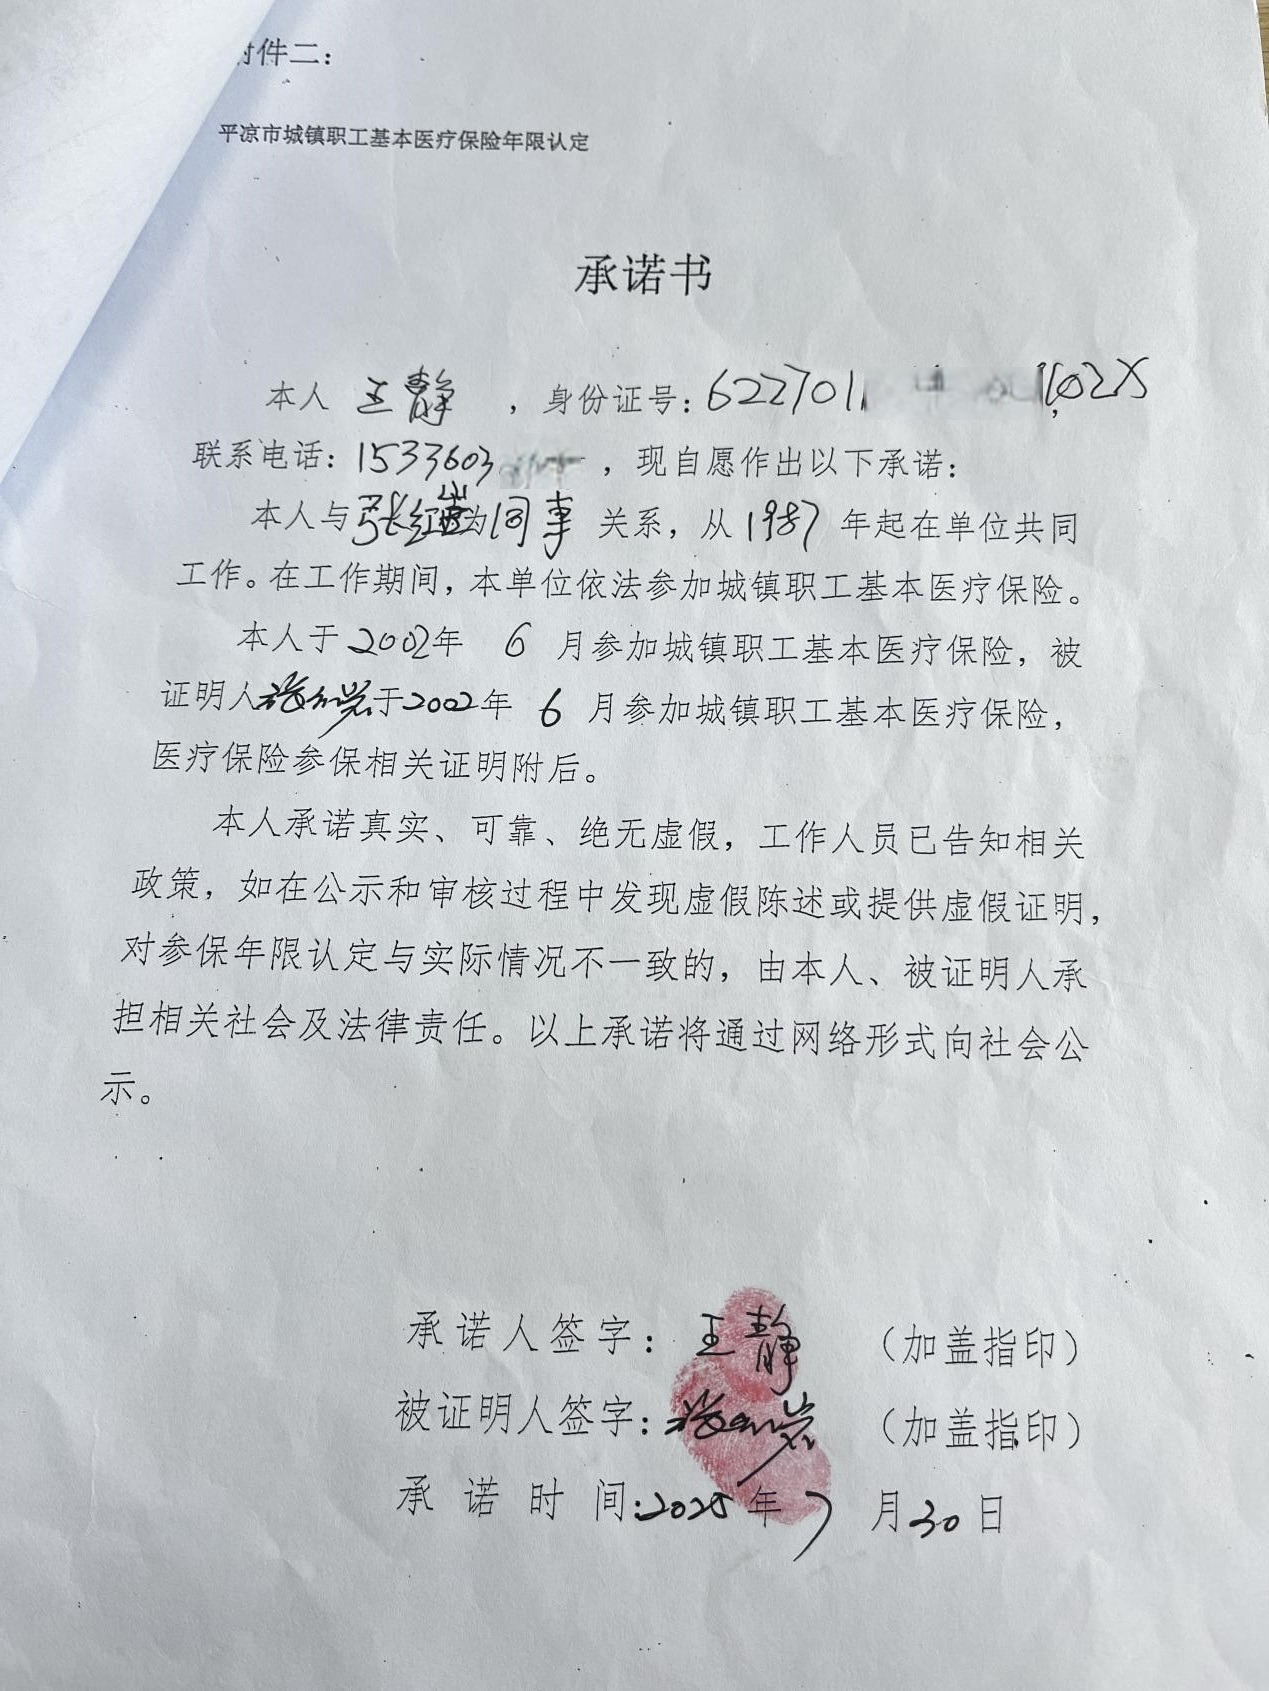 附件二：
平凉市城镇职工基本医疗保险年限认定
承诺书
本人 王静 ，身份证号：622701 102X
联系电话：1533603 ，现自愿作出以下承诺：
本人与张红岩为同事关系，从1987年起在单位共同
工作。在工作期间，本单位依法参加城镇职工基本医疗保险。
本人于2002年 6 月参加城镇职工基本医疗保险，被
证明人张红岩于2002年 6 月参加城镇职工基本医疗保险，
医疗保险参保相关证明附后。
本人承诺真实、可靠、绝无虚假，工作人员已告知相关
政策，如在公示和审核过程中发现虚假陈述或提供虚假证明，
对参保年限认定与实际情况不一致的，由本人、被证明人承
担相关社会及法律责任。以上承诺将通过网络形式向社会公
示。
承诺人签字：王静 （加盖指印）
被证明人签字：张红岩 （加盖指印）
承诺时间：2025年7月30日